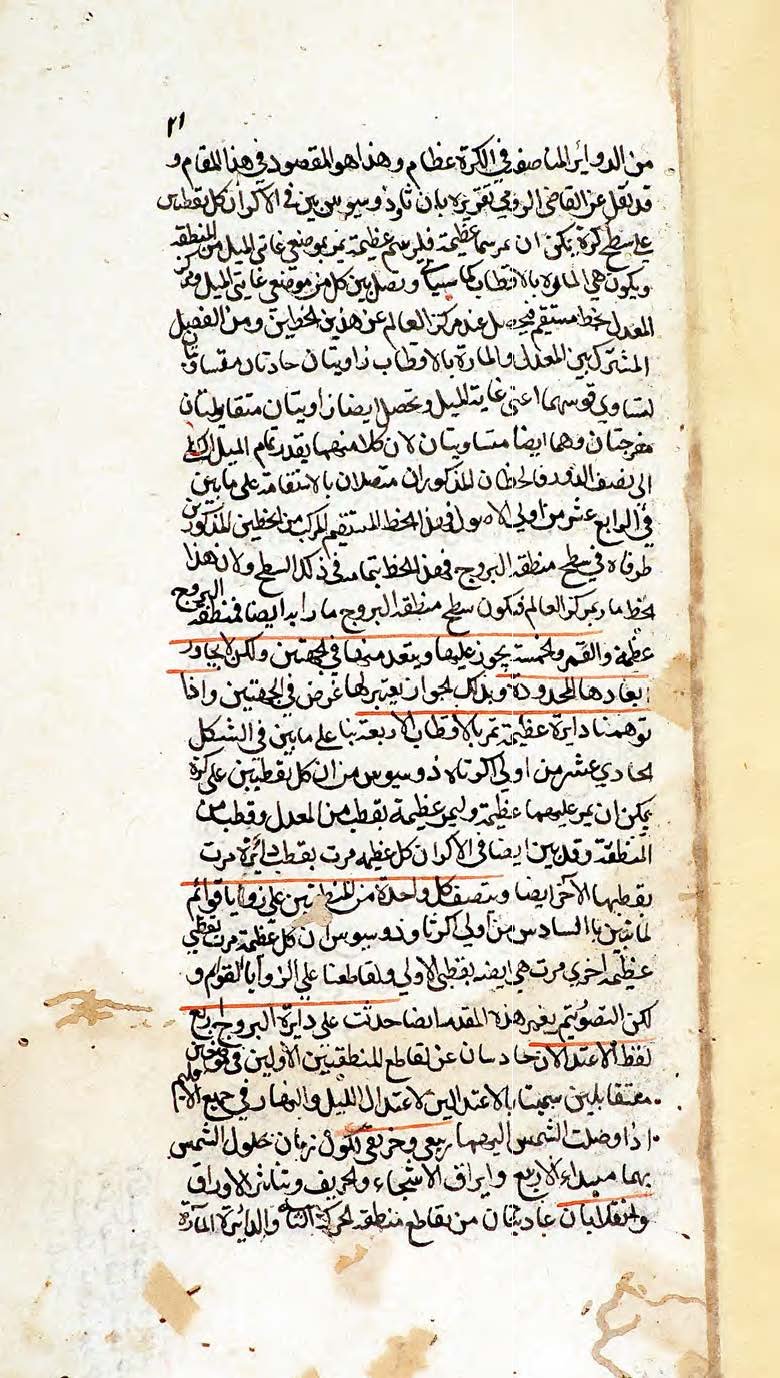 ٢١
من الدواير المناصفة في الكرة عظام وهذا هو المقصود في هذا المقام و
قد نقل عن القاضي الرومي تقريره بان ثاوذوسيوس بين في الاكر ان كل نقطتين
على سطح كرة يمكن ان يمر بهما عظيمة فليرسم عظيمة تمر بموضعي غايتي الميل من المنطقة
ويكون هي المارة بالاقطاب كما سياتي ونصل بين كل من موضعي غايتي الميل ومركز
المعدل بخط مستقيم فيحصل عند مركز العالم عن هذين الخطين ومن الفصل
المشترك بين المعدل والمارة بالاقطاب زاويتان حادتان متساويتان
لتساوي قوسهما اعني غاية الميل وتحصل ايضا زاويتان متقابلتان
منفرجتان وهما ايضا متساويتان لان كلا منهما بقدر تمام الميل الكلي
الى نصف الدور فالخطان المذكوران متصلان بالاستقامة على ما بين
في الرابع عشر من اولي الاصول فهذا الخط المستقيم المركب من الخطين المذكورين
طرفاه في سطح منطقة البروج فهذا الخط بتمامه في ذلك السطح ولان هذا
الخط مار بمركز العالم فيكون سطح منطقة البروج مارا به ايضا فمنطقة البروج
عظيمة والقمر والخمسة يجوز عليها ويتعد منها في الجهتين ولكن لا يجاوز
ابعادها المحدودة وبذلك الجواز يعتبر لها عرض في الجهتين واذا
توهمنا دايرة عظيمة تمر بالاقطاب الاربعة بنا على ما بين في الشكل
الحادي عشر من اولي اكر ثاوذوسيوس من ان كل نقطتين على كرة
يمكن ان يمر عليهما عظيمة وليمر عظيمة بقطب من المعدل وقطب من
المنطقة وقد بين ايضا في الاكر ان كل عظيمة مرت بقطب دائرة مرت
بقطبها الآخر ايضا وينتصف كل واحدة من المنطقتين على زوايا قوائم
لما تبين بالسادس من اولي اكر ثاوذوسيوس ان كل عظيمة مرت بقطبي
عظيمة اخرى مرت هي ايضا بقطبي الاولى وتقاطعتا على الزوايا القوائم و
لكن التصوير يتم بغير هذه المقدمة ايضا حدثت على دايرة البروج اربع
نقط الاعتدالان حادثان عن تقاطع المنطقتين الاولين في موضعين
متقابلين سميتا بالاعتدالين لاعتدال الليل والنهار في جميع الاقاليم
اذا وصلت الشمس اليهما ربيعي وخريفي لكون زمان حلول الشمس
بهما مبداء الربيع وايراق الاشجار والخريف وتناثر الاوراق
والانقلابان حادثان من تقاطع منطقة الحركة الثانية والدائرة المارة